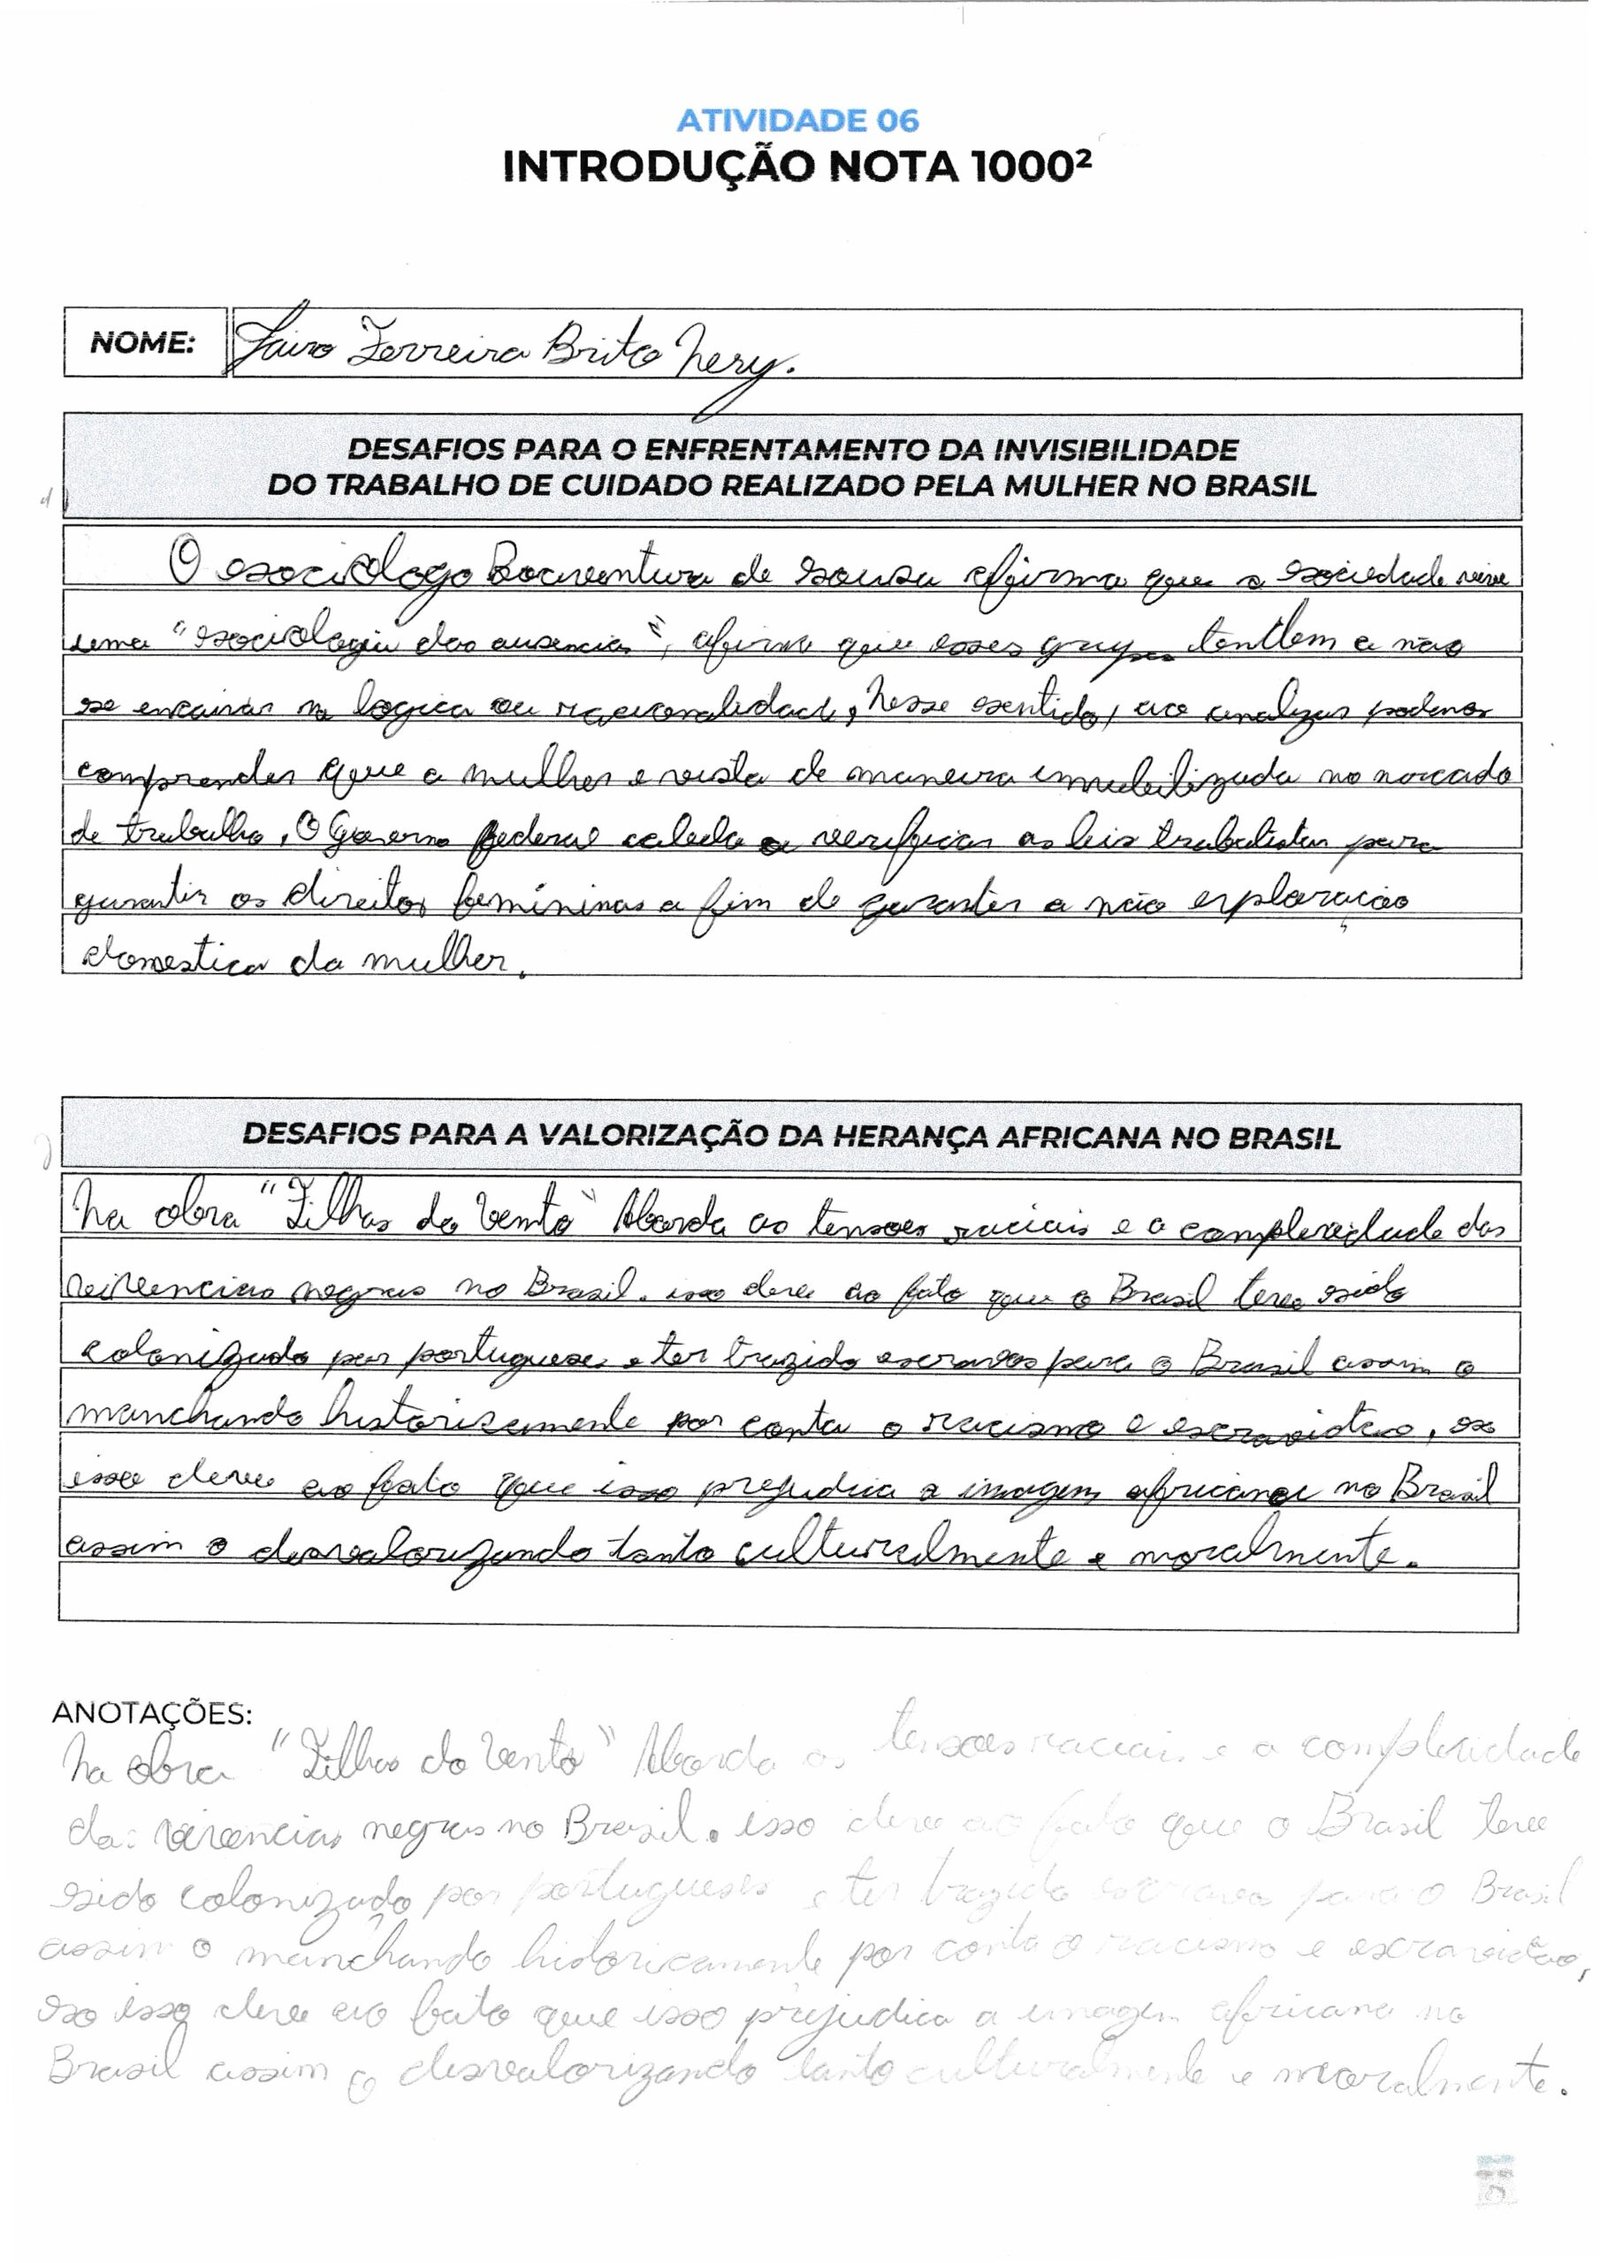 ATIVIDADE 06
INTRODUÇÃO NOTA 1000²
NOME: Jairo Ferreira Brito Nery.
DESAFIOS PARA O ENFRENTAMENTO DA INVISIBILIDADE
DO TRABALHO DE CUIDADO REALIZADO PELA MULHER NO BRASIL
O sociólogo Boaventura de sousa afirma que a sociedade vive
uma "sociologia das ausencias", afirma que esses grupos tendem a não
se encaixar na logica ou racionalidade, Nesse sentido, ao analizar podemos
comprender que a mulher e vista de maneira imubilizada no mercado
de trabalho. O Governo federal verificar as leis trabalistas para
garantir os direitos femininas a fim de garantir a não exploração
domestica da mulher.
DESAFIOS PARA A VALORIZAÇÃO DA HERANÇA AFRICANA NO BRASIL
Na obra "Filhas do Vento" Aborda as tensoes raciais e a complexidade das
vivencias negras no Brasil. isso deve ao fato que o Brasil teve sido
colonizado por portugueses e ter trazido escravos para o Brasil assim o
manchando historicamente por conta o racismo e escravidão, so
isso deve ao fato que isso prejudica a imagem africana no Brasil
assim o desvalorizando tanto culturalmente e moralmente.
ANOTAÇÕES:
Na obra "Filhas do Vento" Aborda as tensoes raciais e a complexidade
das vivencias negras no Brasil. isso deve ao fato que o Brasil teve
sido colonizado por portugueses e ter trazido escravos para o Brasil
assim o manchando historicamente por conta o racismo e escravidão,
so isso deve ao fato que isso prejudica a imagem africana no
Brasil assim o desvalorizando tanto culturalmente e moralmente.